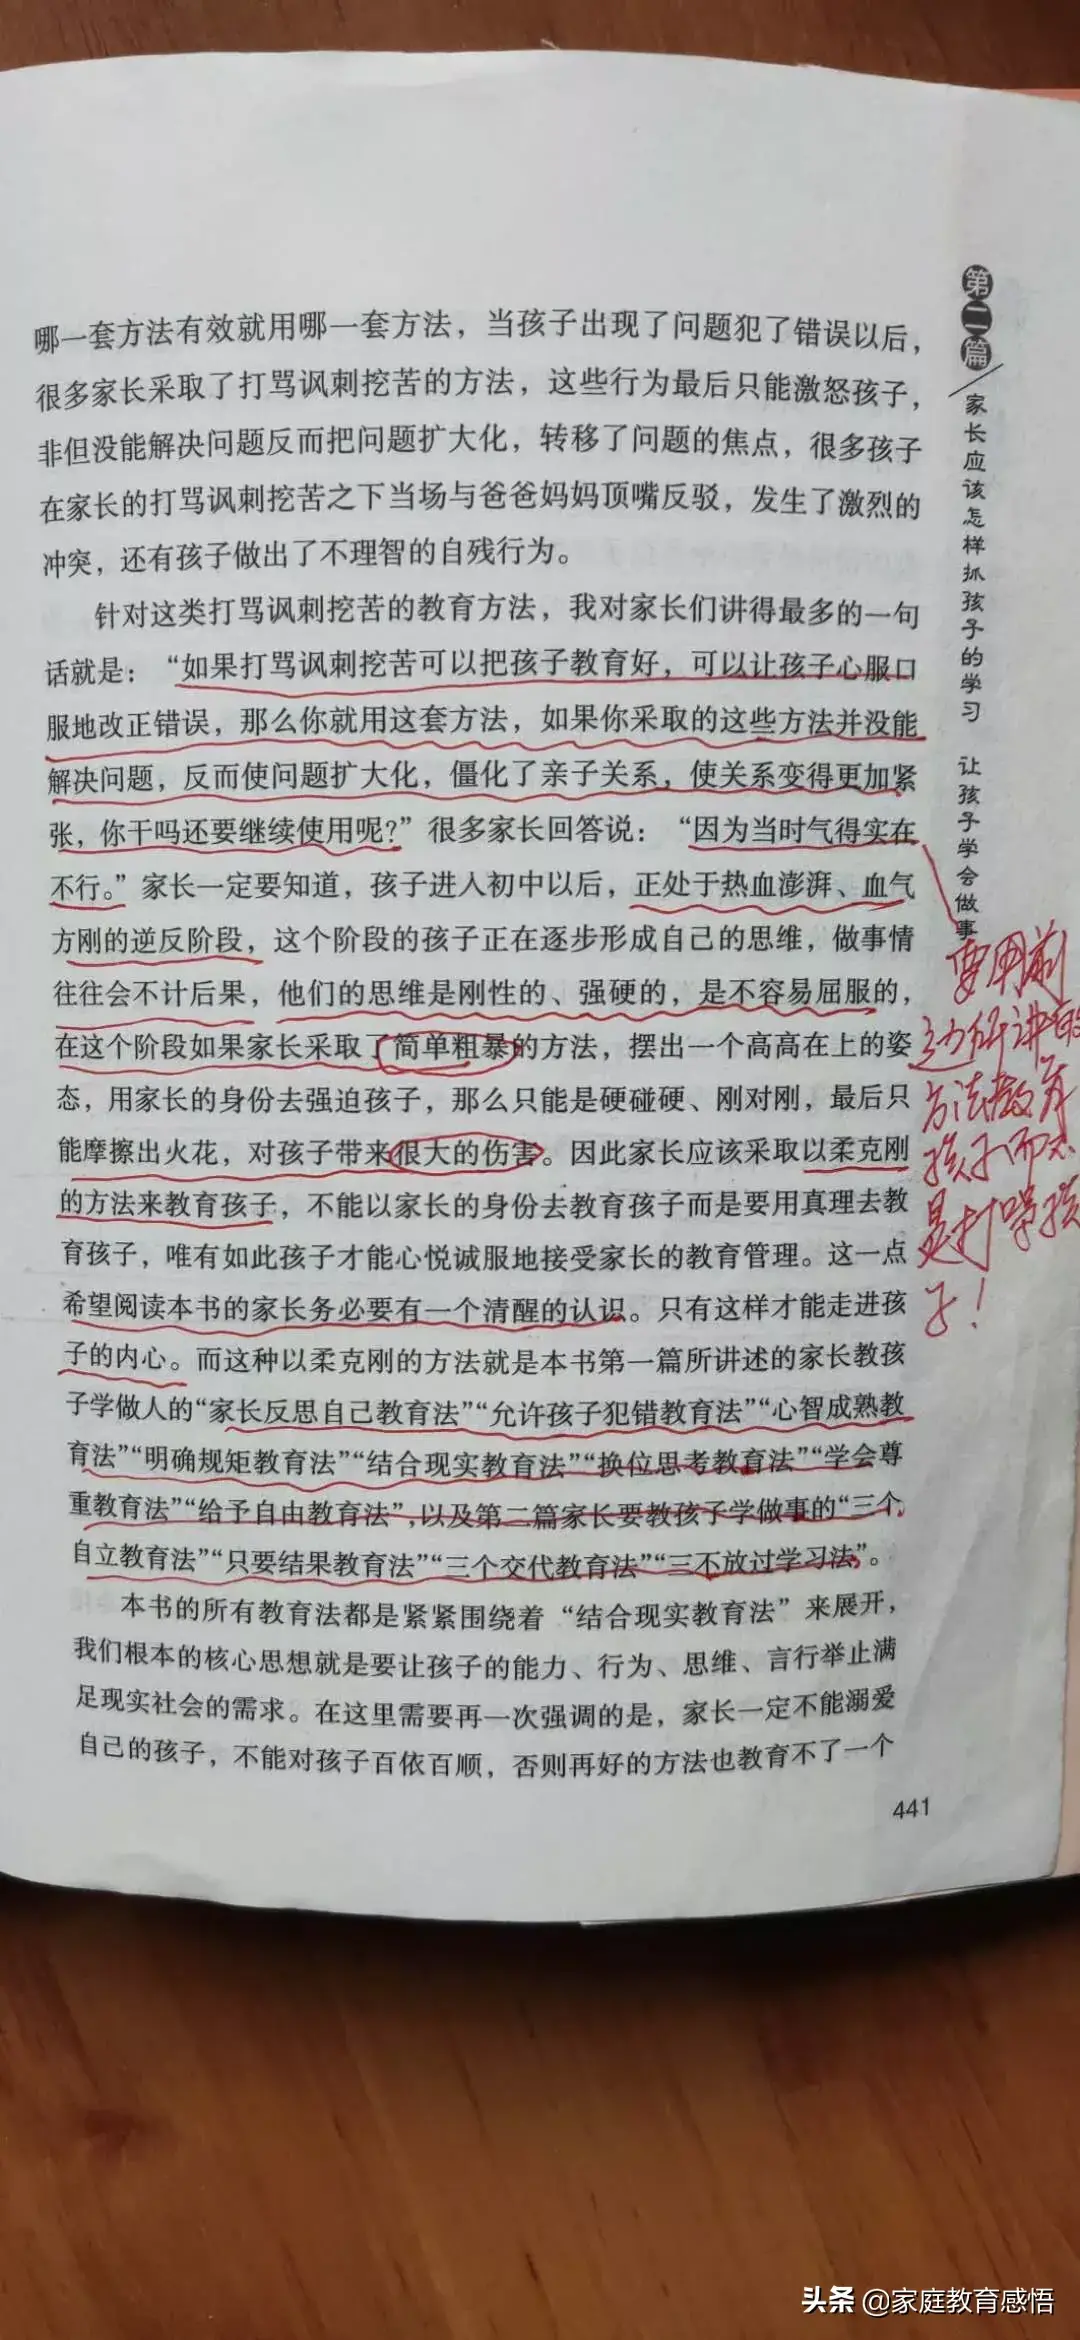 哪一套方法有效就用哪一套方法，当孩子出现了问题犯了错误以后，
很多家长采取了打骂讽刺挖苦的方法，这些行为最后只能激怒孩子，
非但没能解决问题反而把问题扩大化，转移了问题的焦点，很多孩子
在家长的打骂讽刺挖苦之下当场与爸爸妈妈顶嘴反驳，发生了激烈的
冲突，还有孩子做出了不理智的自残行为。
针对这类打骂讽刺挖苦的教育方法，我对家长们讲得最多的一句
话就是：“如果打骂讽刺挖苦可以把孩子教育好，可以让孩子心服口
服地改正错误，那么你就用这套方法，如果你采取的这些方法并没能
解决问题，反而使问题扩大化，僵化了亲子关系，使关系变得更加紧
张，你干吗还要继续使用呢？”很多家长回答说：“因为当时气得实在
不行。”家长一定要知道，孩子进入初中以后，正处于热血澎湃、血气
方刚的逆反阶段，这个阶段的孩子正在逐步形成自己的思维，做事情
往往会不计后果，他们的思维是刚性的、强硬的，是不容易屈服的，
在这个阶段如果家长采取了简单粗暴的方法，摆出一个高高在上的姿
态，用家长的身份去强迫孩子，那么只能是硬碰硬、刚对刚，最后只
能摩擦出火花，对孩子带来很大的伤害。因此家长应该采取以柔克刚
的方法来教育孩子，不能以家长的身份去教育孩子而是要用真理去教
育孩子，唯有如此孩子才能心悦诚服地接受家长的教育管理。这一点
希望阅读本书的家长务必要有一个清醒的认识。只有这样才能走进孩
子的内心。而这种以柔克刚的方法就是本书第一篇所讲述的家长教孩
子学做人的“家长反思自己教育法”“允许孩子犯错教育法”“心智成熟教
育法”“明确规矩教育法”“结合现实教育法”“换位思考教育法”“学会尊
重教育法”“给予自由教育法”，以及第二篇家长要教孩子学做事的“三个
自立教育法”“只要结果教育法”“三个交代教育法”“三不放过学习法”。
本书的所有教育法都是紧紧围绕着“结合现实教育法”来展开，
我们根本的核心思想就是要让孩子的能力、行为、思维、言行举止满
足现实社会的需求。在这里需要再一次强调的是，家长一定不能溺爱
自己的孩子，不能对孩子百依百顺，否则再好的方法也教育不了一个
441
第二篇
家长应该怎样抓孩子的学习 让孩子学会做事
要用前
边所讲的
方法教育
孩子而不
是打骂孩
子！
头条 @家庭教育感悟